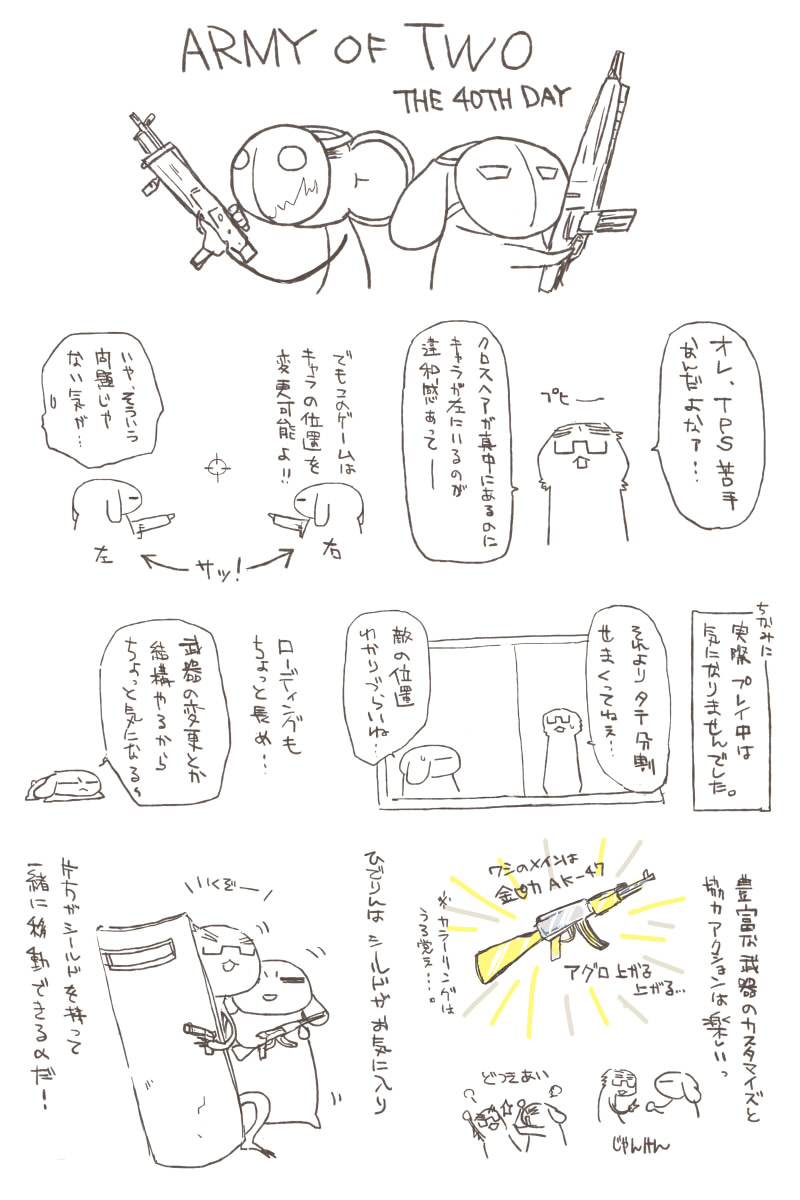 ARMY OF TWO
THE 40TH DAY
オレ、TPS苦手
なんだよなァ…
プヒ──
クロスヘアが真中にあるのに
キャラが左にいるのが
違和感あって──
でもこのゲームは
キャラの位置を
変更可能よ!!
いや、そういう
問題じゃ
ない気が…
右
サッ!
左
ちなみに
実際プレイ中は
気になりませんでした。
それよりタテ分割
せまくってねぇ…
敵の位置
わかりづらいね…
ローディングも
ちょっと長め…
武器の変更とか
結構やるから
ちょっと気になる
豊富な武器のカスタマイズと
協力アクションは楽しいっ
ワシのメインは
金ピカAK-47
※カラーリングは
うる覚え…。
アグロ上がる
上がる…
じゃんけん
どつきあい
ひでりんはシールドがお気に入り
いくぞー
片方がシールドを持って
一緒に移動できるのだ!